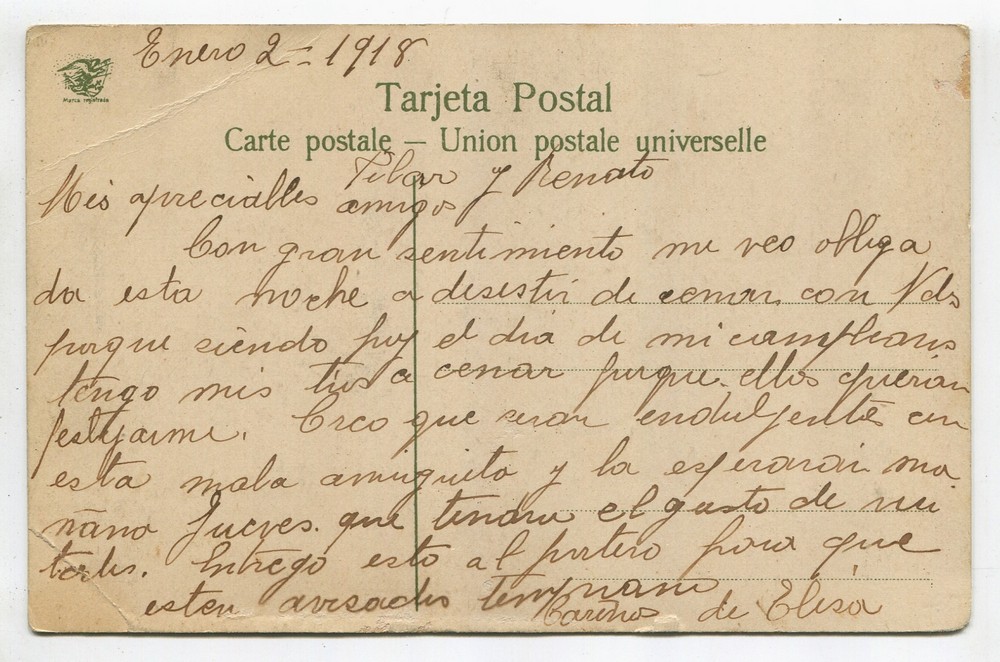 Enero 2-1918
Marca registrada
Tarjeta Postal
Carte postale — Union postale universelle
Pilar y Renato
Mis apreciables amigos
Con gran sentimiento me veo obliga
da esta noche a desestir de cenar con Vds
porque siendo hoy el dia de mi cumpleaños
tengo mis tios a cenar porque ellos querian
festejarme. Creo que seran endulgentes con
esta mala amiguita y la esperarán ma
ñana Jueves. que tendre el gusto de vi
tarlos. Entrego esto al portero para que
esten avisados temprano
Cariños de Elisa